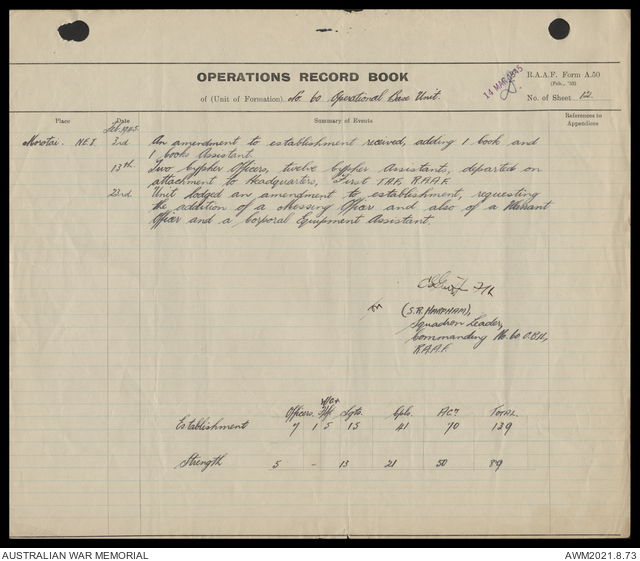 14 MAR 1945
OPERATIONS RECORD BOOK
R.A.A.F. Form A.50
of (Unit of Formation) No. 60 Operational Base Unit.
No. of Sheet 12.
Place Date Summary of Events References to Appendices
Feb. 1945.
Morotai. N.E.I. 3rd An amendment to establishment received, adding 1 Cook and
1 Cooks Assistant.
13th. Two Cypher Officers, twelve Cypher Assistants, departed on
attachment to Headquarters, First T.A.F. R.A.A.F.
23rd Unit lodged an amendment to establishment, requesting
the addition of a Messing Officer and also of a Warrant
Officer and a Corporal Equipment Assistant.
(S.R. HARPHAM),
Squadron Leader,
Commanding No. 60 O.B.U,
R.A.A.F.
Officers. Sgts. Cpls. ACs TOTAL.
Establishment 7 1 5 15 41 70 139
Strength 5 - 13 21 50 89
AUSTRALIAN WAR MEMORIAL
AWM2021.8.73